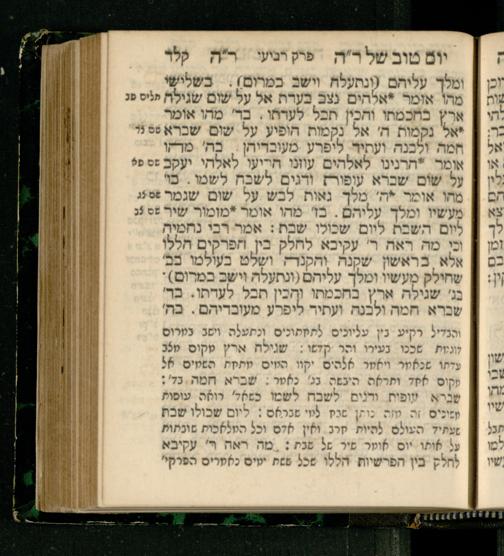 יום טוב של ר״ה פרק רביעי ר״ה קלד
ומלך עליהם (ונתעלה וישב במרום). בשלישי
מהו אומר *אלהים נצב בעדת אל על שום שגילה תלים פב
ארץ בחכמתו והכין תבל לעדתו. בד׳ מהו אומר
*אל נקמות ה׳ אל נקמות הופיע על שום שברא שם צד
חמה ולבנה ועתיד ליפרע מעובדיהן. בה׳ מהו
אומר *הרנינו לאלהים עוזנו הריעו לאלהי יעקב שם פא
על שום שברא עופות ודגים לשבח לשמו. בו׳
מהו אומר *ה׳ מלך גאות לבש על שום שגמר שם צג
מעשיו ומלך עליהם. בז׳ מהו אומר *מזמור שיר שם צב
ליום השבת ליום שכולו שבת: אמר רבי נחמיה
וכי מה ראה ר׳ עקיבא לחלק בין הפרקים הללו
אלא בראשון שקנה והקנה ושלט בעולמו בב׳
שחילק מעשיו ומלך עליהם (ונתעלה וישב במרום)
בג׳ שגילה ארץ בחכמתו והכין תבל לעדתו. בד׳
שברא חמה ולבנה ועתיד ליפרע מעובדיהם. בה׳
והבדיל רקיע בין עליונים לתחתונים ונתעלה וישב במרום
דוגמת שכנו בעירו והר קדשו: שגילה ארץ מקום מצב
עדתו שנאמר ויאמר אלהים יקוו המים מתחת השמים אל
מקום אחד ותראה היבשה בג׳ נאמר: שברא חמה בד׳:
שברא עופות ודגים לשבח לשמו כשאד׳ רואה עופות
משונים זה מזה נותן שבח למי שבראם: ליום שכולו שבת
שעתיד העולם להיות חרב ואין אדם וכל המלאכות שובתות
על אותו יום אומר שיר של שבת: מה ראה ר׳ עקיבא
לחלק בין הפרשיות הללו שכל ששת ימים נאמרים הפרקי׳